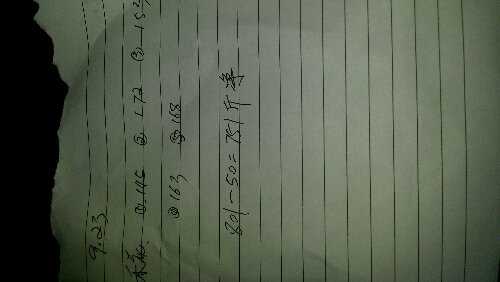 9.23
①145 ②172 ③153
④163 ⑤168
801-50=751斤净